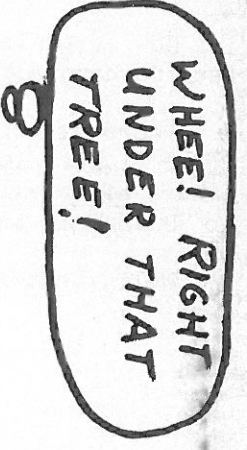 WHEE! RIGHT
UNDER THAT
TREE!